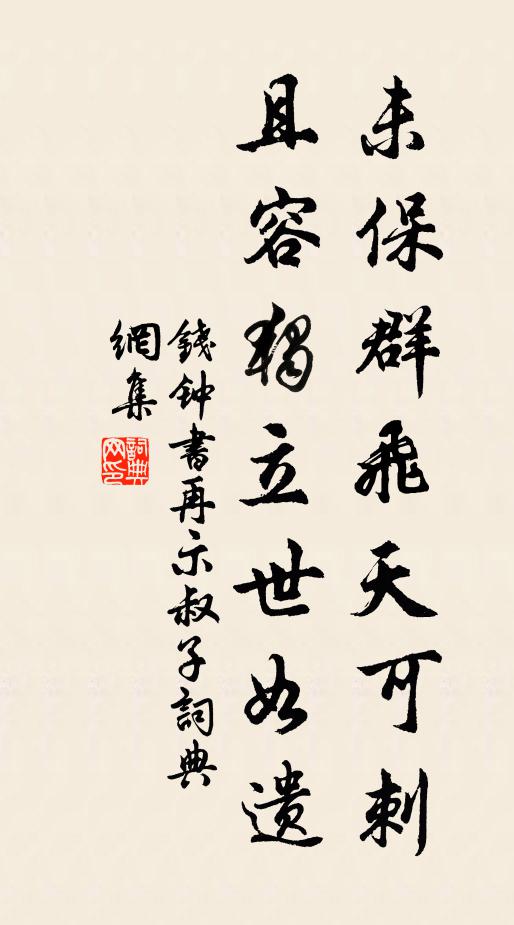 未保群飛天可刺
且容獨立世如遺
錢钟書再示叔子詞典
網集
詞典網印